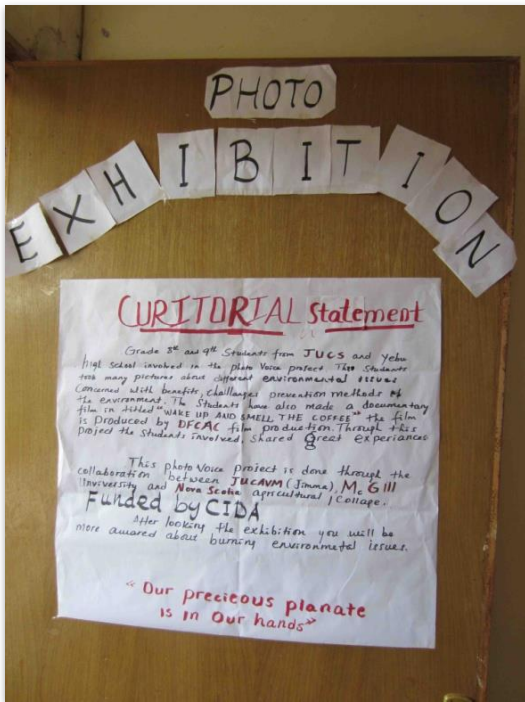 PHOTO
EXHIBITION
CURITORIAL Statement
Grade 8th and 9th Students from JUCS and Yebu
High school involved in the photo Voice project. Thes Students
took many pictures about different environmental issues
concerned with benefits, challanges prevention methods of
the environment. The Students have also made a documentary
film in titled "WAKE UP AND SMELL THE COFFEE" the film
is produced by DFCAC film production. Through this
project the Students involved, shared great experiances
This photo Voice project is done through the
collaboration between JUCAVM (Jimma), Mc Gill
University and Nova Scotia agricultural collage.
Funded by CIDA
After looking the exhibition you will be
more awared about burning environmetal issues.
"Our precieous planate
is in our hands"